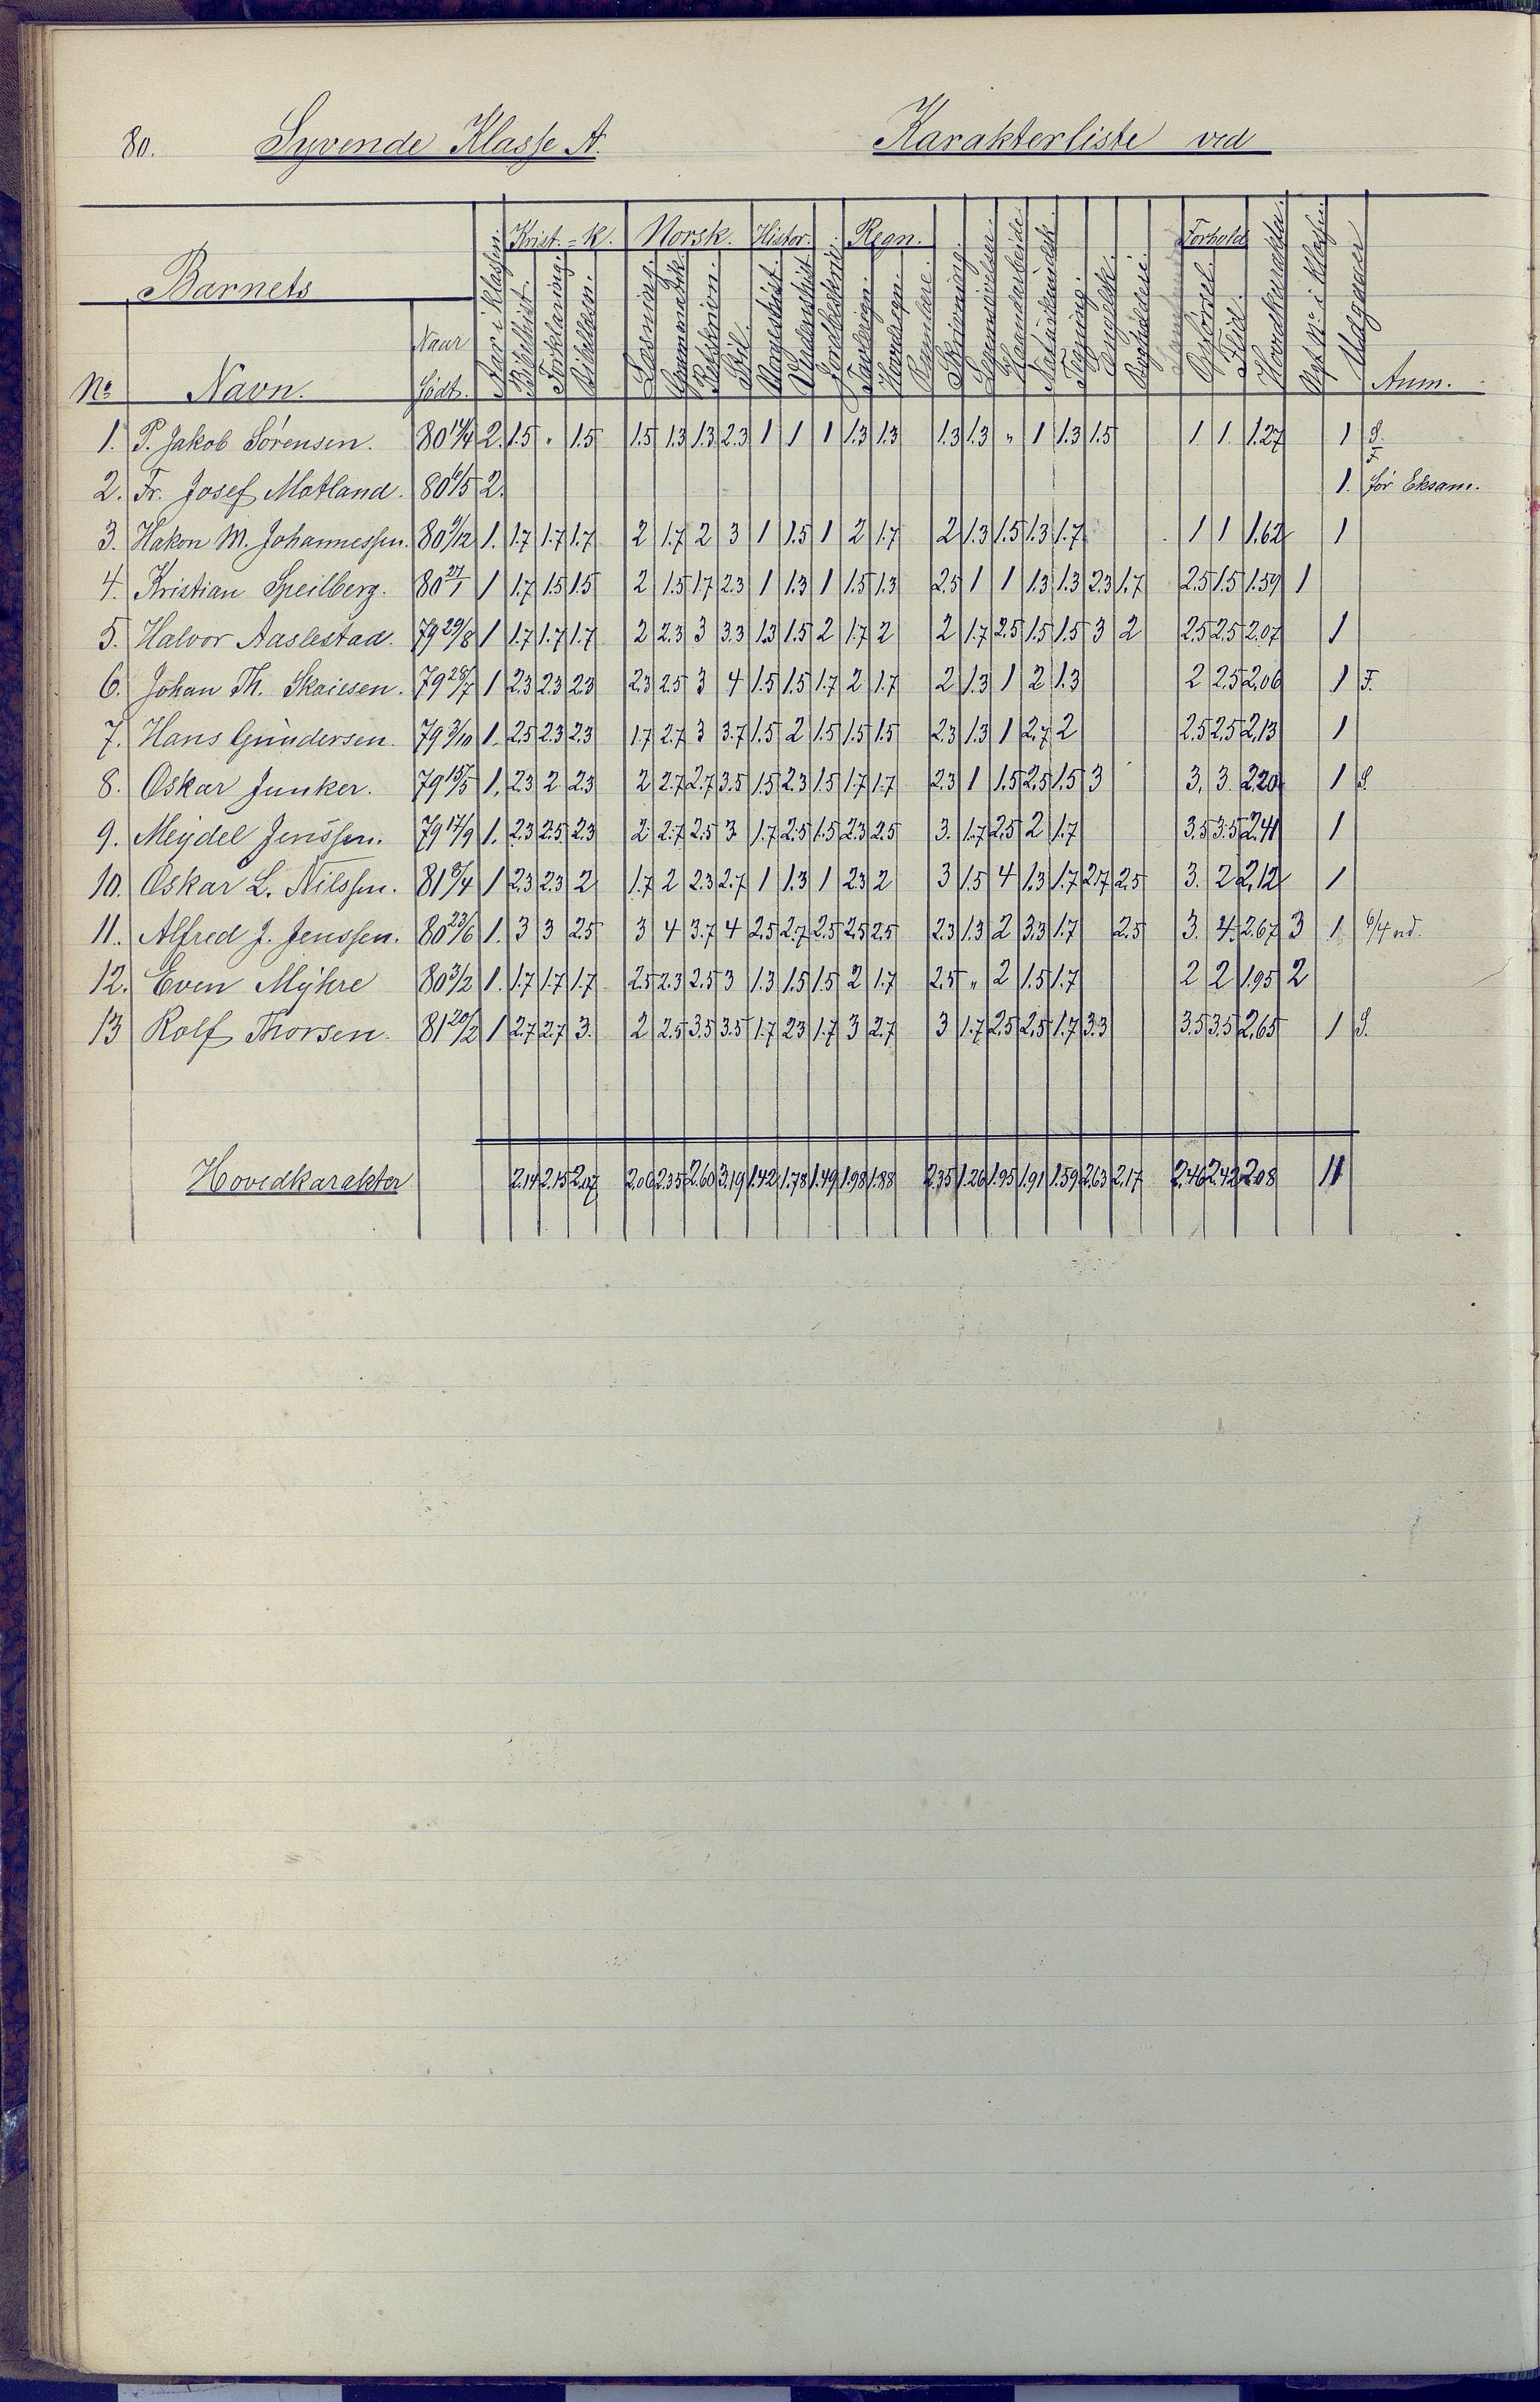 80. Syvende Klasse A. Karakterliste ved
Barnets Krist.=k. Norsk. Histor. Regn. Forhold
No Navn. Naar født. Aar i klassen. Bibelhist. Forklaring. Bibellæsn. Læsning. Grammatik. Retskrivn. Stil. Norgeshist. Verdenshist. Jordbeskriv. Tavleregn. Hovedregn. Skrivning. Legemsøvelser. Haandarbeide. Naturkundsk. Tegning. Engelsk. Opførsel. Flid. Hovedkarakter. Nyt No i Klassen. Udgaaet Anm.
1. P. Jakob Sørensen. 80 14/4 2. 1.5 " 1.5 1.5 1.3 1.3 2.3 1 1 1 1.3 1.3 1.3 1.3 " 1 1.3 1.5 1 1. 1.27 1 S. F.
2. Fr. Josef Motland. 80 6/5 2. 1. før Eksam.
3. Hakon M. Johannessen. 80 9/12 1. 1.7 1.7 1.7 2 1.7 2 3 1 1.5 1 2 1.7 2 1.3 1.5 1.3 1.7 1 1 1.62 1
4. Kristian Speilberg. 80 27/1 1 1.7 1.5 1.5 2 1.5 1.7 2.3 1 1.3 1 1.5 1.3 2.5 1 1 1.3 1.3 2.3 1.7 2.5 1.5 1.59 1
5. Halvor Aaslestad. 79 29/8 1 1.7 1.7 1.7 2 2.3 3 3.3 1.3 1.5 2 1.7 2 2 1.7 2.5 1.5 1.5 3 2 2.5 2.5 2.07 1
6. Johan Th. Skaiesen. 79 28/7 1 2.3 2.3 2.3 2.3 2.5 3 4 1.5 1.5 1.7 2 1.7 2 1.3 1 2 1.3 2 2.5 2.06 1 F.
7. Hans Gundersen. 79 3/10 1. 2.5 2.3 2.3 1.7 2.7 3 3.7 1.5 2 1.5 1.5 1.5 2.3 1.3 1 2.7 2 2.5 2.5 2.13 1
8. Oskar Junker. 79 15/5 1. 2.3 2 2.3 2 2.7 2.7 3.5 1.5 2.3 1.5 1.7 1.7 2.3 1 1.5 2.5 1.5 3 3. 3. 2.20 1 S.
9. Meydel Jenssen. 79 17/9 1. 2.3 2.5 2.3 2 2.7 2.5 3 1.7 2.5 1.5 2.3 2.5 3. 1.7 2.5 2 1.7 3.5 3.5 2.41 1
10. Oskar L. Nilssen. 81 8/4 1 2.3 2.3 2 1.7 2 2.3 2.7 1 1.3 1 2.3 2 3 1.5 4 1.3 1.7 2.7 2.5 3. 2 2.12 1
11. Alfred J. Jenssen. 80 23/6 1. 3 3 2.5 3 4 3.7 4 2.5 2.7 2.5 2.5 2.5 2.3 1.3 2 3.3 1.7 2.5 3. 4. 2.67 3 1 6/4 nd.
12. Even Myhre 80 3/2 1. 1.7 1.7 1.7 2.5 2.3 2.5 3 1.3 1.5 1.5 2 1.7 2.5 " 2 1.5 1.7 2 2 1.95 2
13 Rolf Thorsen. 81 20/2 1 2.7 2.7 3. 2 2.5 3.5 3.5 1.7 2.3 1.7 3 2.7 3 1.7 2.5 2.5 1.7 3.3 3.5 3.5 2.65 1 S.
Hovedkarakter 2.14 2.15 2.07 2.06 2.35 2.60 3.19 1.42 1.78 1.49 1.98 1.88 2.35 1.26 1.95 1.91 1.59 2.63 2.17 2.46 2.42 2.08 11